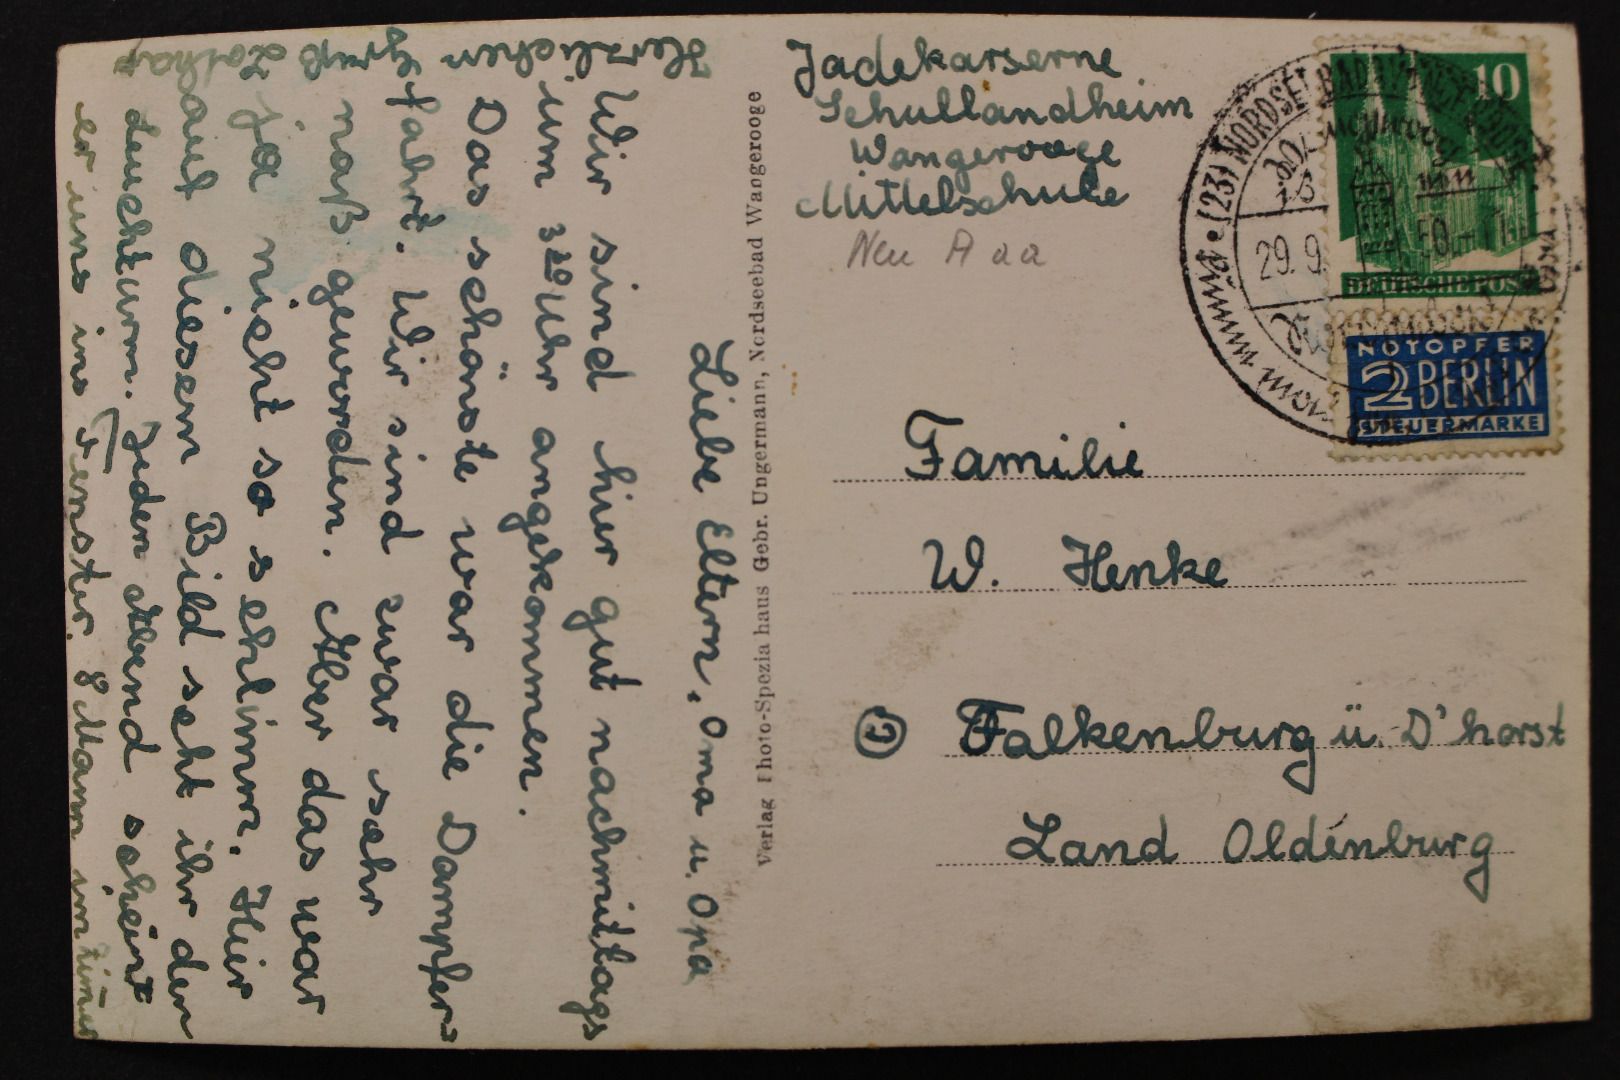 Jadekarserne
Schullandheim
Wangerooge
Mittelschule
Neu
Familie
W. Henke
Falkenburg ü. D'horst
Land Oldenburg
10
DEUTSCHE POST
NOTOPFER
2 BERLIN
STEUERMARKE
(23) NORDSEEBAD WANGEROOGE
29. 9. 50
Verlag Photo-Spezialhaus Gebr. Ungermann, Nordseebad Wangerooge
Liebe Eltern, Oma u. Opa
Wir sind hier gut nachmittags
um 3 20 Uhr angekommen.
Das schönste war die Dampfer-
fahrt. Wir sind zwar sehr
naß geworden. Aber das war
ja nicht so schlimm. Hier
auf diesem Bild seht ihr den
Leuchturm. Jeden Abend scheint
er uns ins Fenster. 8 Mann im Zimmer
Herzlichen Gruß Lothar